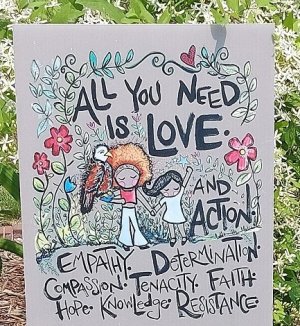 ALL YOU NEED
IS LOVE.
AND
ACTION.
EMPATHY. DETERMINATION.
COMPASSION. TENACITY. FAITH.
HOPE. KNOWLEDGE. RESISTANCE.